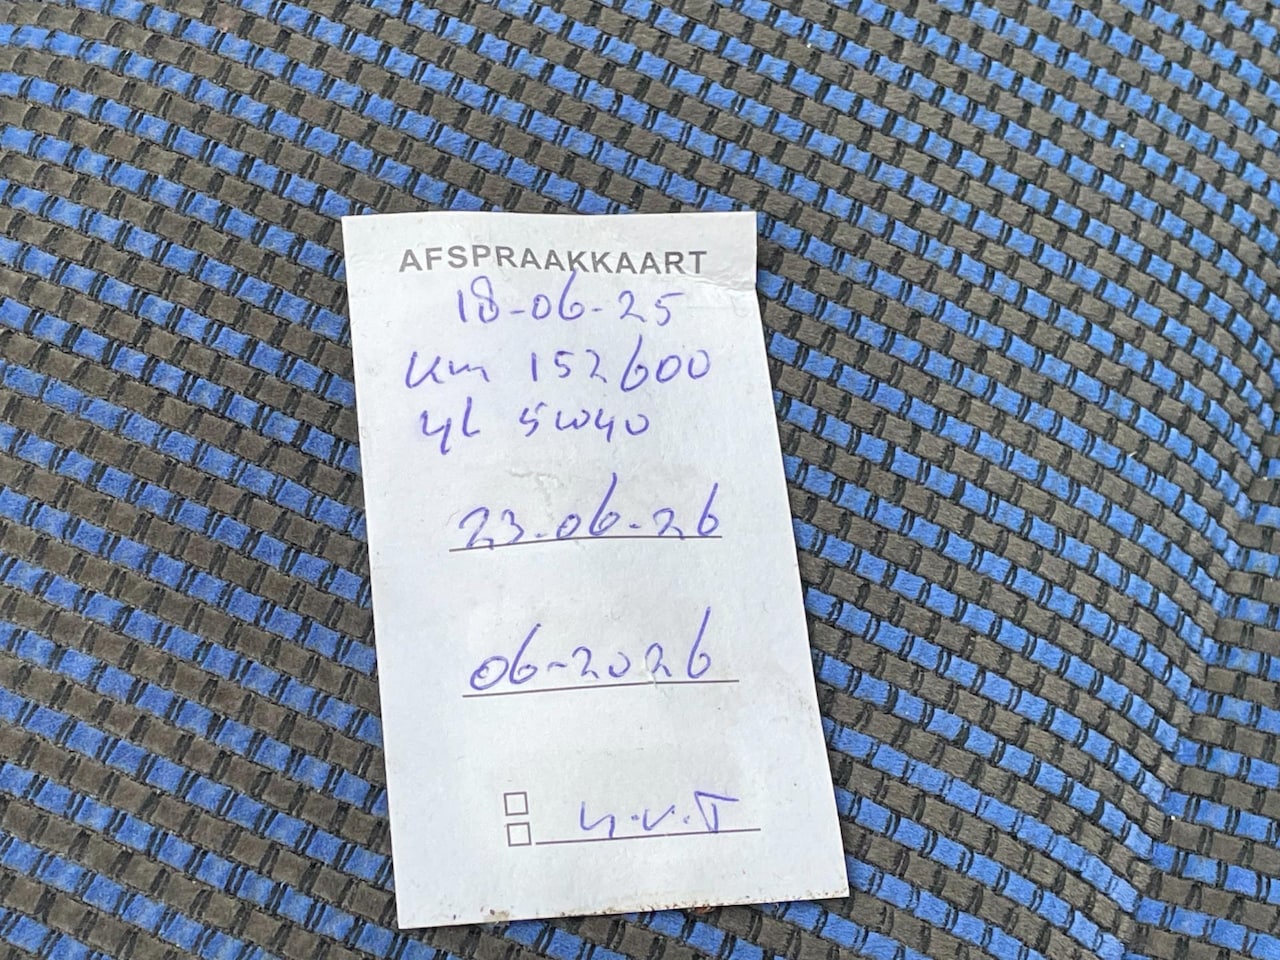 AFSPRAAKKAART
18-06-25
Km 152600
4L 5W40
23-06-26
06-2026
n.v.T